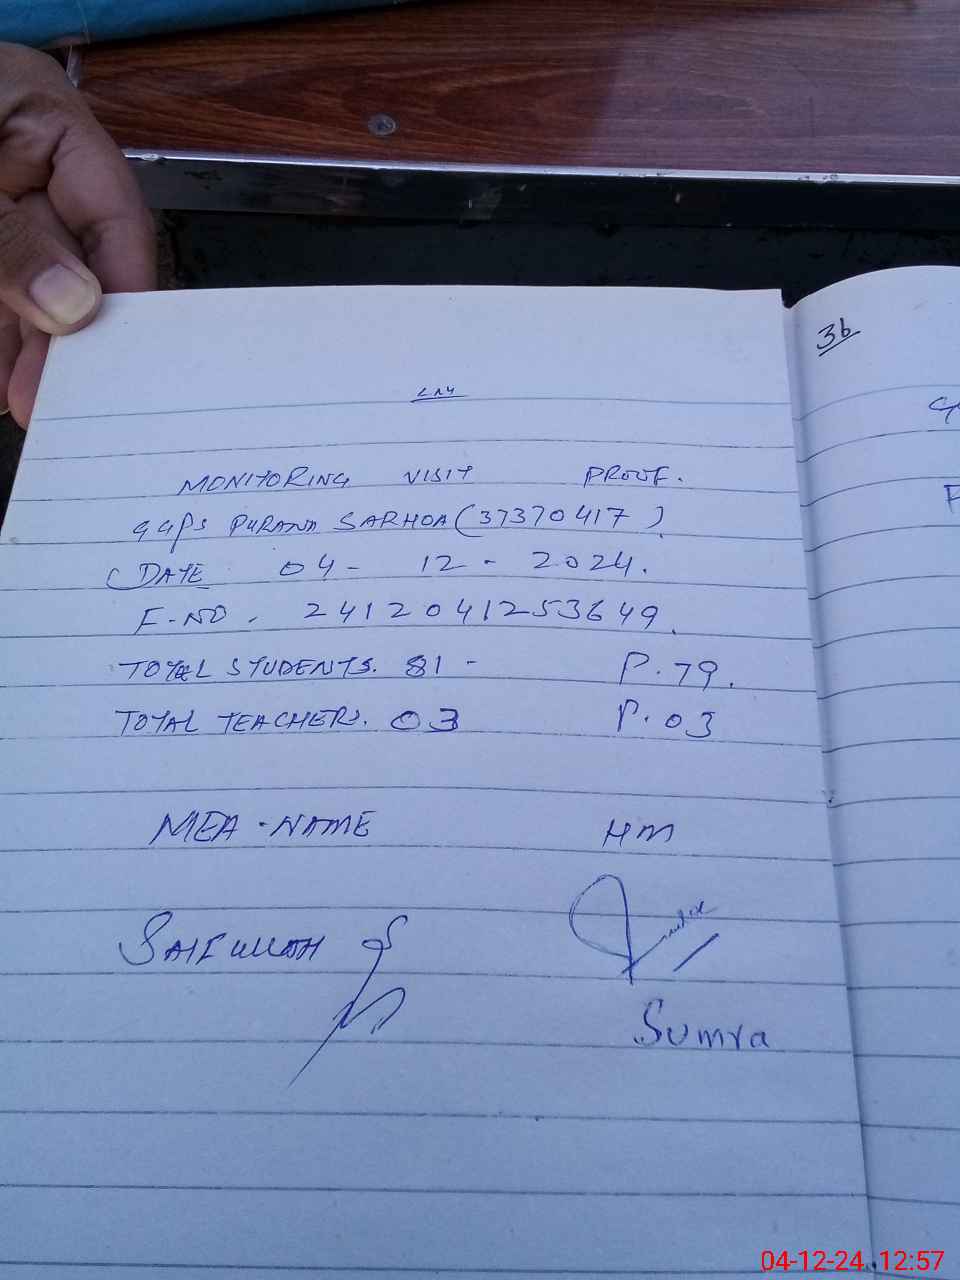 MONITORING VISIT PROOF.
GGPS PURANA SARHOA (37370417)
DATE 04 - 12 - 2024.
F-NO. 2412041253649.
TOTAL STUDENTS. 81 - P. 79.
TOTAL TEACHERS. 03 P. 03
MEA - NAME HM
SAIFULLAH
Sumra
36
04-12-24, 12:57